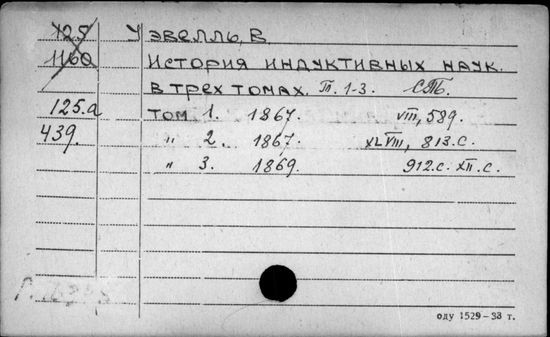 125 Уэвелль, В.
1160 История индуктивных наук.
в трех томах. Т. 1-3. СПб.
125.а том 1. 1867. VIII, 589.
439. " 2. 1867. XLVIII, 813.с.
" 3. 1869. 912.с. XII.с.
оду 1529-38 г.